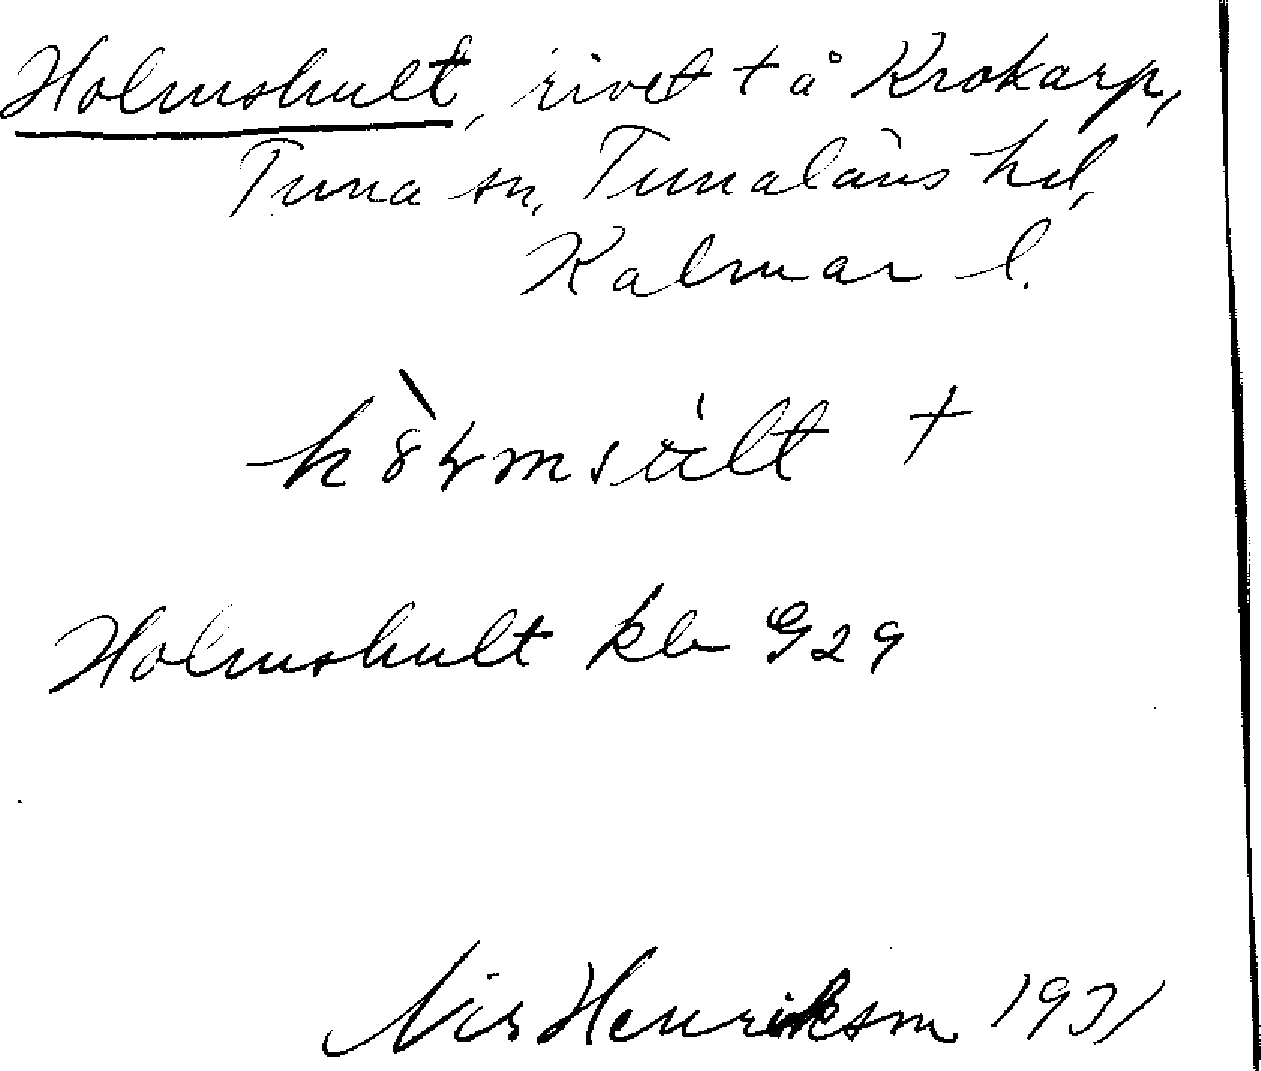 Holmshult, rivet t å Krokarp,
Tuna sn, Tunaläns hd,
Kalmar l.
+
Holmshult kb G29
Nils Henrikson 1931